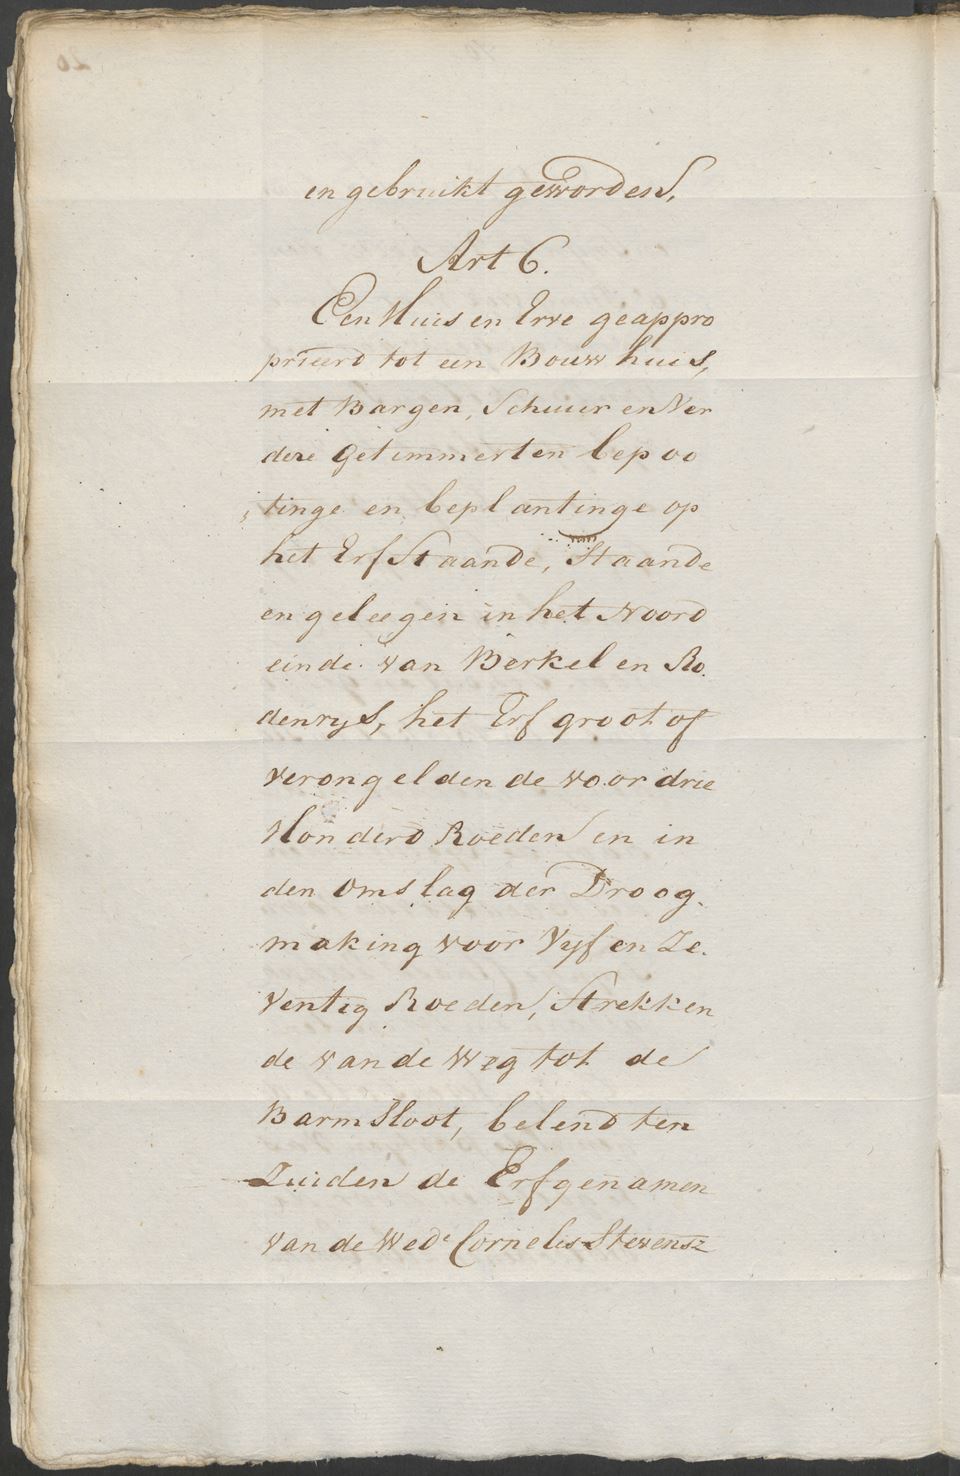 en gebruikt geworden.
Art 6.
Een Huis en Erve geappro
prieerd tot een Bouwhuis,
met Bargen, Schuur en Ver
dere Getimmerten bepoo
tinge en beplantinge op
het Erf Staande, Staande
en geleegen in het Noord
einde van Berkel en Ro.
denrys, het Erf groot of
verongeldende voor drie
Honderd Roeden en in
den Omslag der Droog.
making voor Vyf en Ze.
ventig Roeden, Strekken
de van de Weg tot de
Barmsloot, belend ten
Zuiden de Erfgenamen
van de Wede Cornelis Stevensz